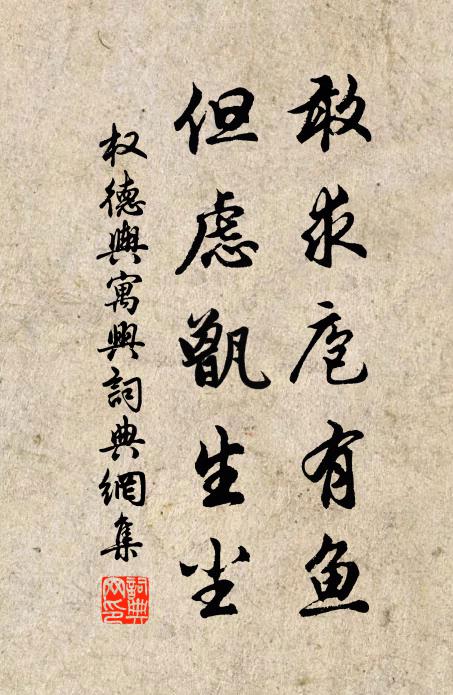 敢求庖有鱼
但虑甑生尘
权德舆寓兴词典網集
詞典網印